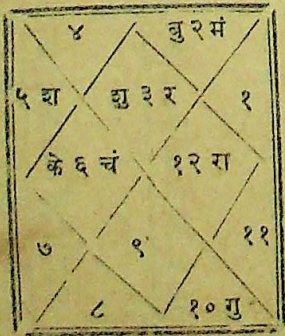 ४ बु २ मं
५ श शु ३ र १
के ६ चं १२ रा
७ ९ ११
८ १० गु